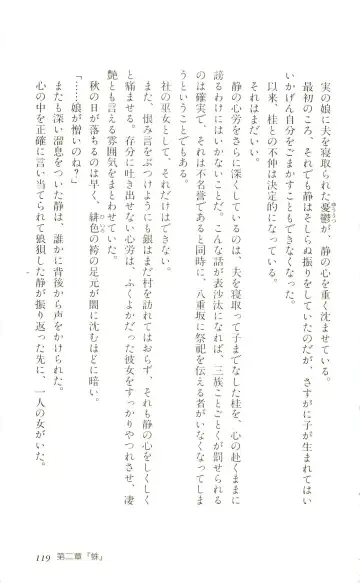 実の娘に夫を寝取られた憂鬱が、静の心を重く沈ませている。
最初のころ、それでも静はそしらぬ振りをしていたのだが、さすがに子が生まれてはい
いかげん自分をごまかすこともできなくなった。
以来、桂との不仲は決定的になっている。
それはまだいい。
静の心労をさらに深くしているのは、夫を寝取って子までなした桂を、心の赴くままに
謗るわけにはいかないことだ。こんな話が表沙汰になれば、三族ことごとくが罰せられる
のは確実で、それは不名誉であると同時に、八重坂に祭祀を伝える者がいなくなってしま
うということでもある。
社の巫女として、それだけはできない。
また、恨み言をぶつけようにも銀はまだ村を訪れてはおらず、それも静の心をしくしく
と痛ませる。存分に吐き出せない心労は、ふくよかだった彼女をすっかりやつれさせ、凄
艶とも言える雰囲気をまとわせていた。
秋の日が落ちるのは早く、緋色の袴の足元が闇に沈むほどに暗い。
「……娘が憎いのね？」
またも深い溜息をついた静は、誰かに背後から声をかけられた。
心の中を正確に言い当てられて狼狽した静が振り返った先に、一人の女がいた。
119 第二章『蛛』